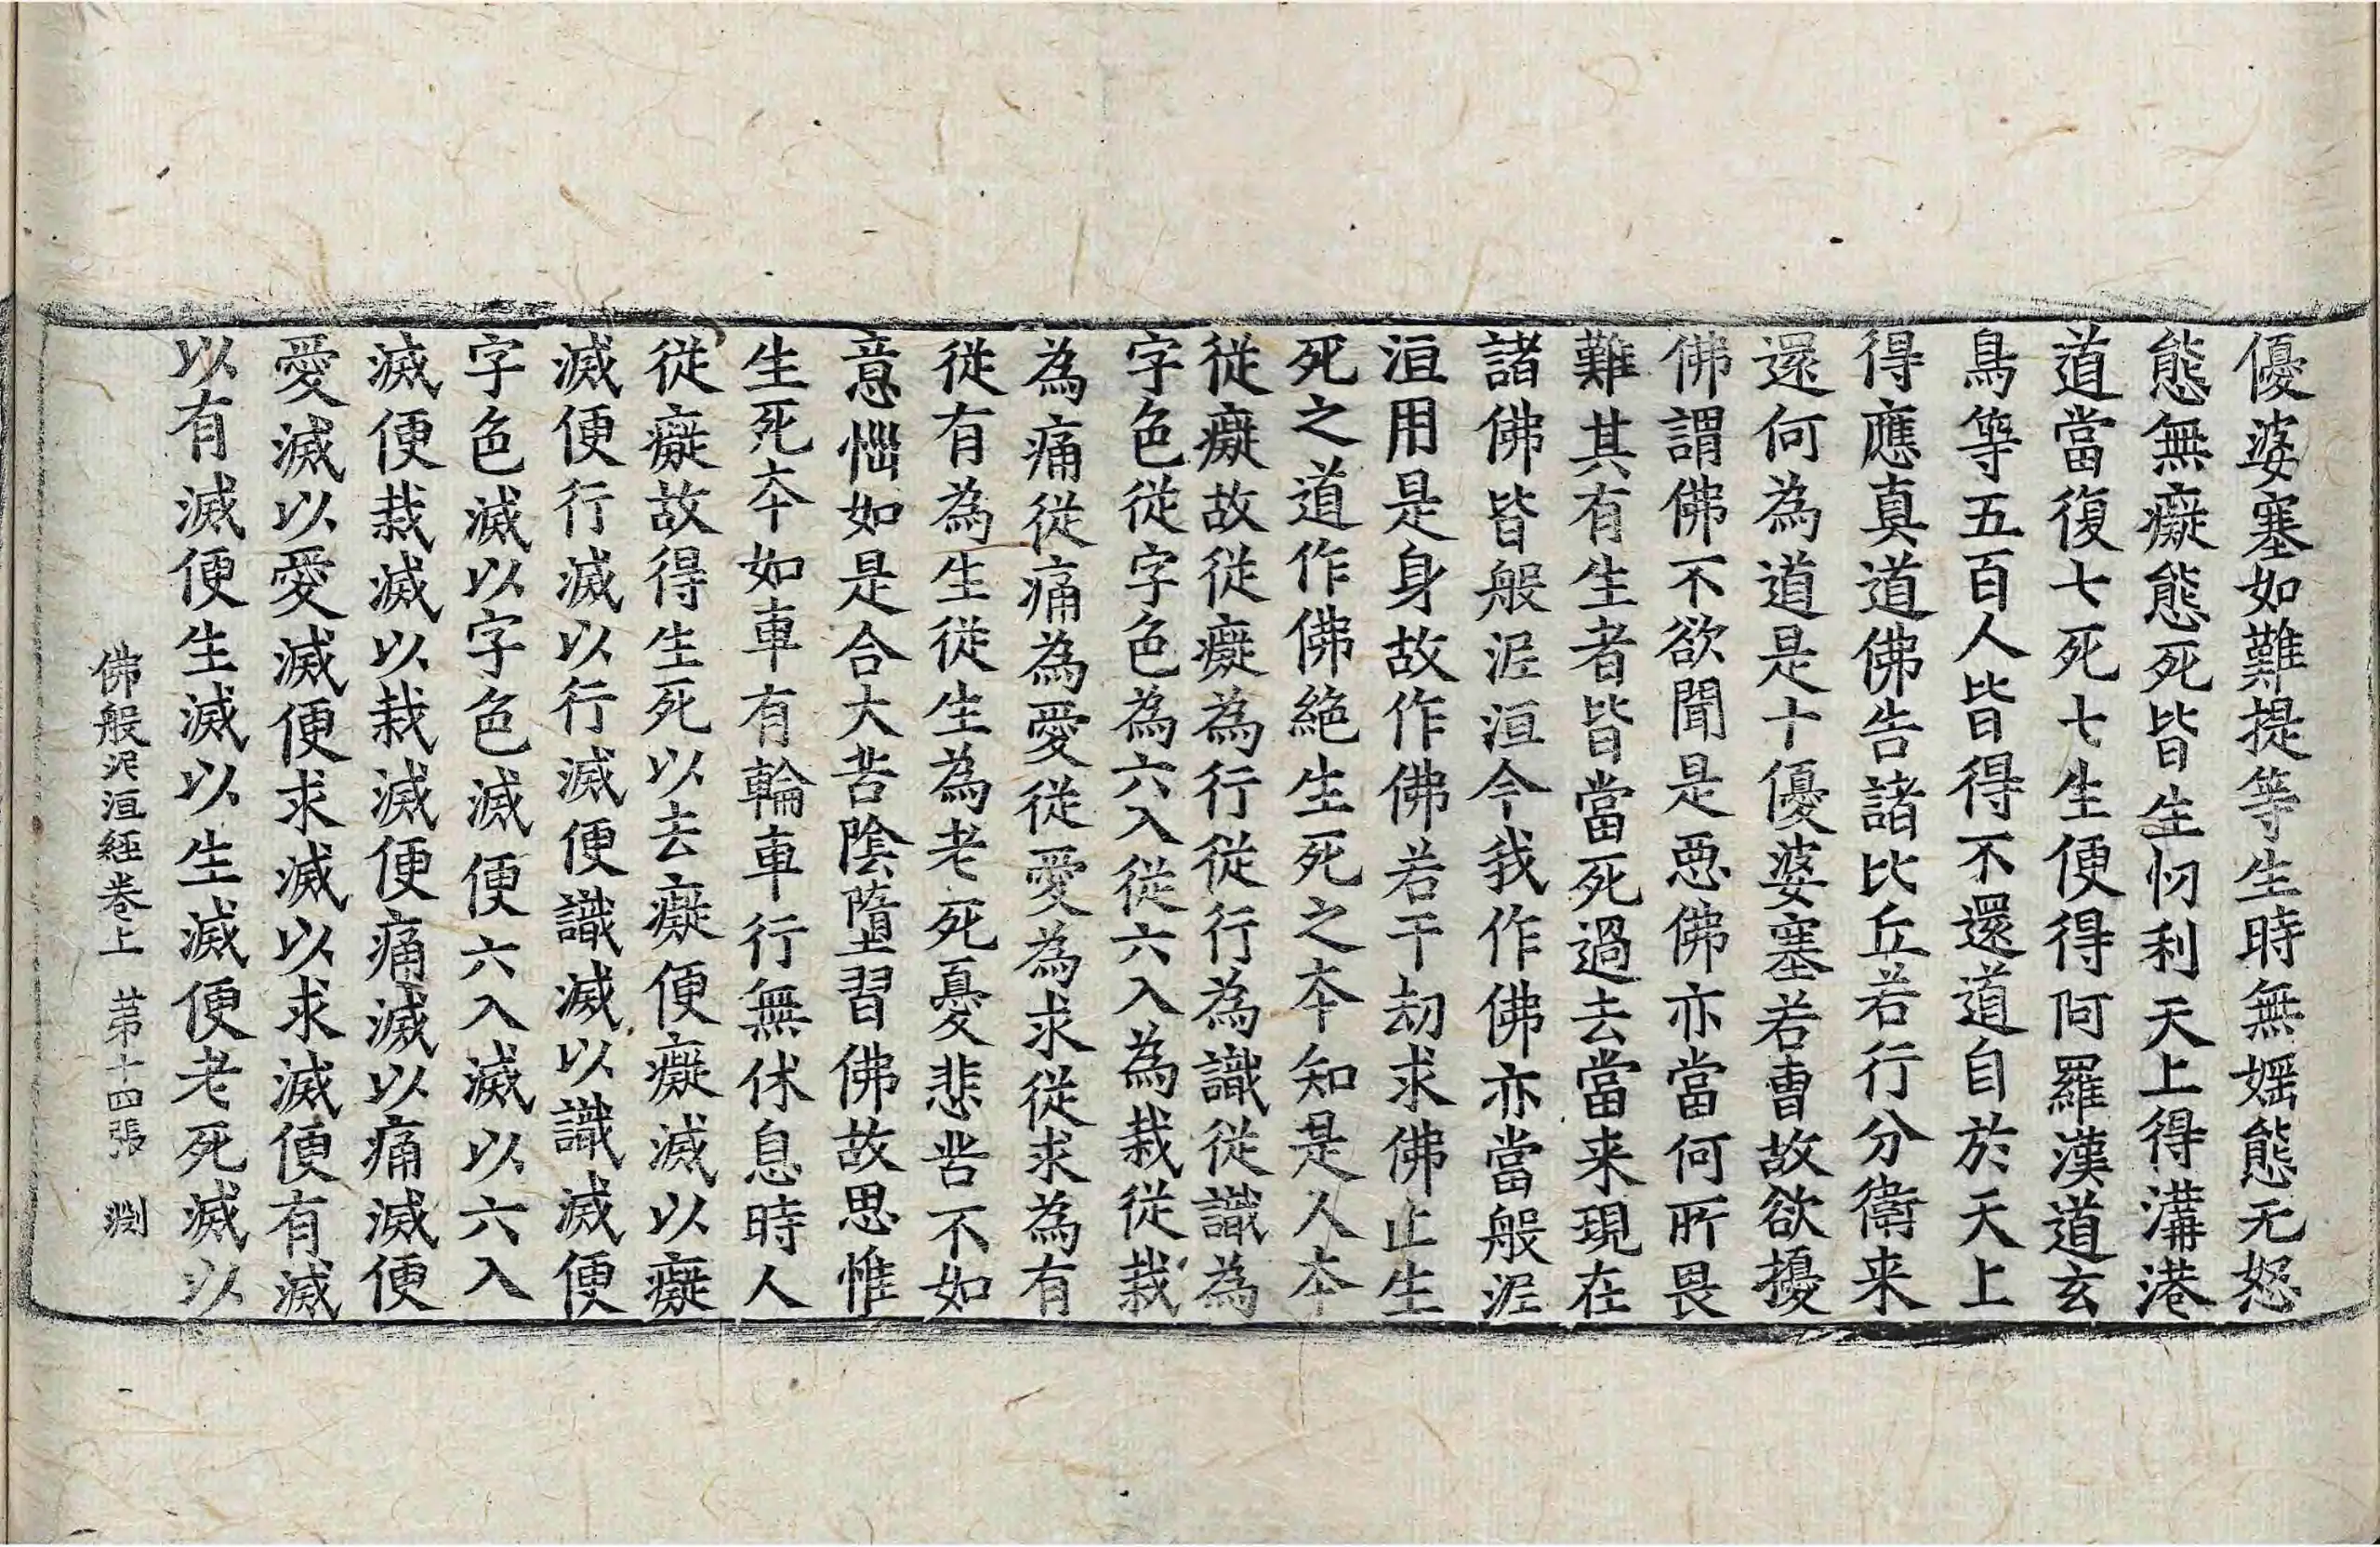 優婆塞如難提等生時無婬態无怒
態無癡態死皆生忉利天上得溝港
道當復七死七生便得阿羅漢道玄
鳥等五百人皆得不還道自於天上
得應真道佛告諸比丘若行分衛来
還何為道是十優婆塞若曺故欲擾
佛謂佛不欲聞是惡佛亦當何所畏
難其有生者皆當死過去當来現在
諸佛皆般泥洹今我作佛亦當般泥
洹用是身故作佛若干劫求佛止生
死之道作佛絕生死之夲知是人夲
從癡故從癡為行從行為識從識為
字色從字色為六入從六入為栽從栽
為痛從痛為愛從愛為求從求為有
從有為生從生為老死憂悲苦不如
意惱如是合大苦陰墮習佛故思惟
生死夲如車有輪車行無休息時人
從癡故得生死以去癡便癡滅以癡
滅便行滅以行滅便識滅以識滅便
字色滅以字色滅便六入滅以六入
滅便栽滅以栽滅便痛滅以痛滅便
愛滅以愛滅便求滅以求滅便有滅
以有滅便生滅以生滅便老死滅以
佛般泥洹經卷上 苐十四張 渕